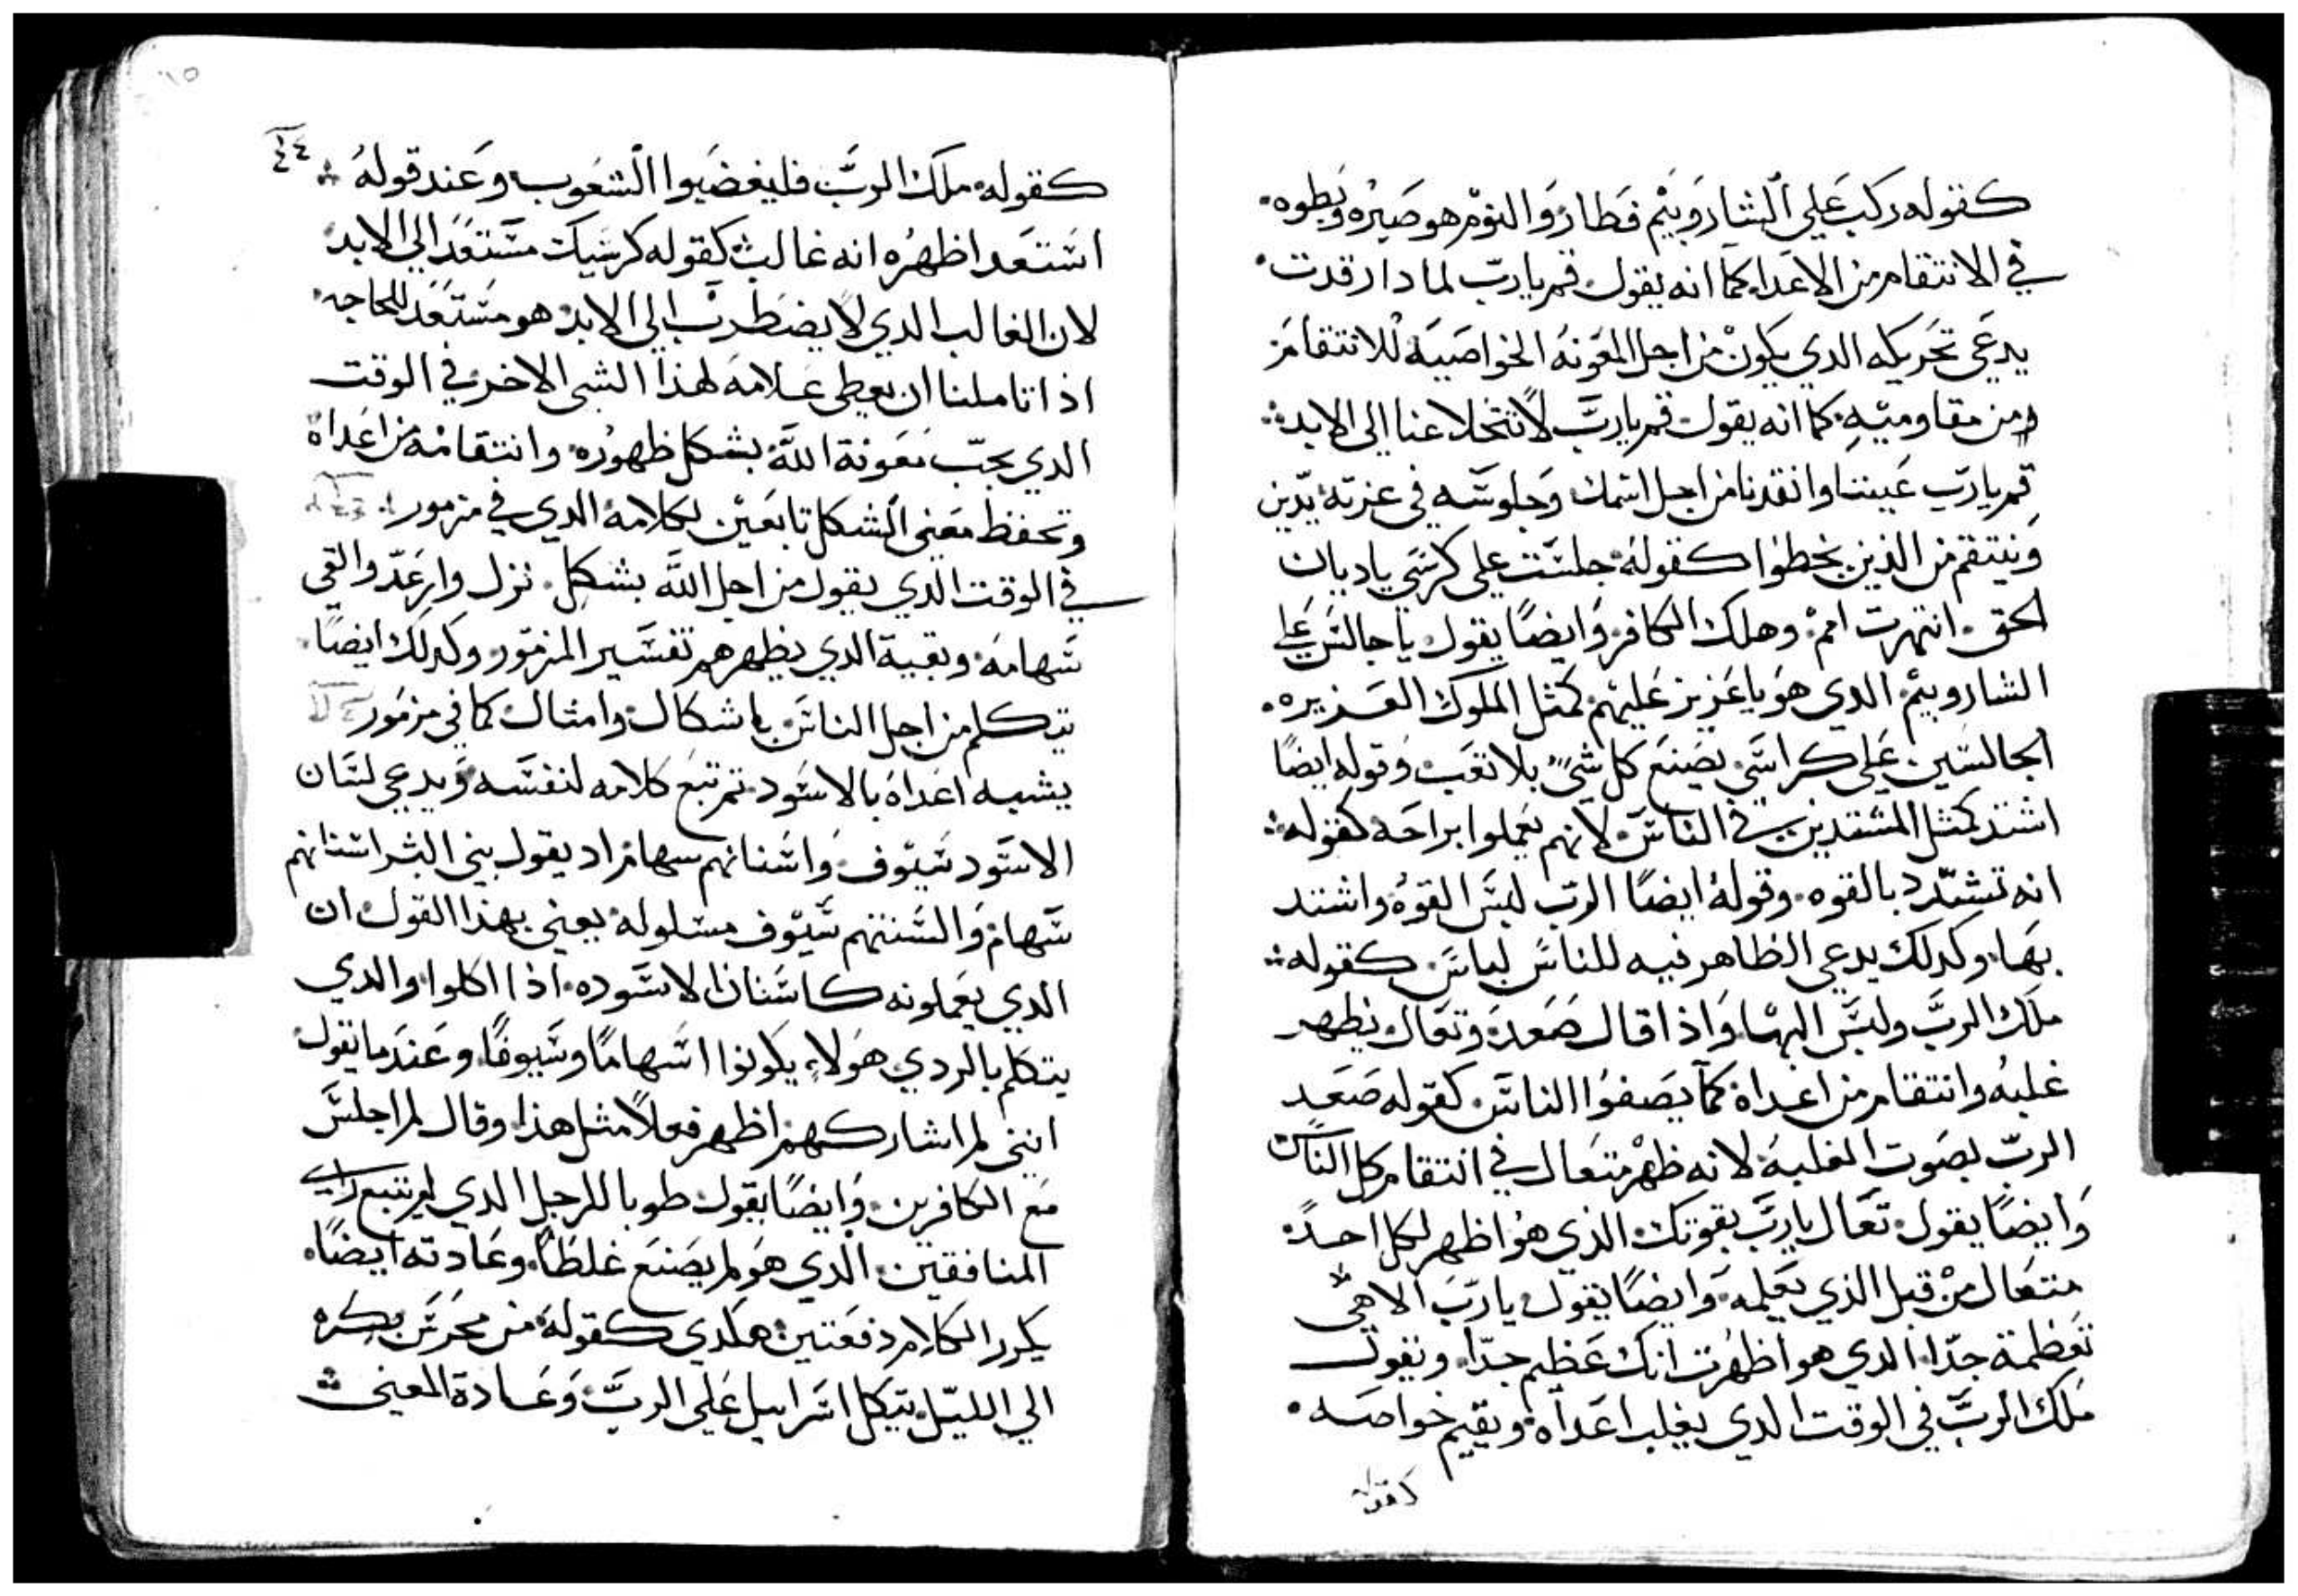 كقوله ركب علي الشاروبيم فطار والنوم هو صبره وبطوه
في الانتقام من الاعدا كما انه يقول قم يارب لمادا رقدت
يدعي تحريكه الدي يكون من اجل المعونه الخواصيه للانتقام
من مقاوميه كما انه يقول قم يارب لا تتخلا عنا الي الابد
قم يارب عيننا وانقدنا من اجل اسمك وجلوسه في عزته يدين
وينتقم من الذين يخطوا كقوله جلست علي كرسي ياديان
الحق انتهرت امم وهلك الكافر وايضًا يقول يا جالس علي
الشاروبيم الدي هو يا عزيز عليهم كمثل الملوك العزيزه
الجالسين علي كراسي يصنع كل شيً بلا تعب وقوله ايضًا
اشتد كمثل المشتدين في الناس لانهم يعملوا براحه كقوله
انه تشدد بالقوه وقوله ايضًا الرب لبس القوه واشتد
بها وكدلك يدعي الظاهر فيه للناس لباس كقوله
ملك الرب ولبس البها واذا قال صعد وتعال يظهر
غلبه وانتقام من اعداه كما يصفوا الناس كقوله صعد
الرب بصوت الغلبه لانه ظهر متعال في انتقام كل الناس
وايضًا يقول تعال يارب بقوتك الذي هو اظهر لكل احد
متعال من قبل الذي تعلمه وايضًا يقول يارب الاهي
تعظمة جدًا الدي هو اظهرت انك عظيم جدًا ويقول
ملك الرب في الوقت الدي يغلب اعداه ويقيم خواصه
كقوله
٤٤
كقوله ملك الرب فليغضبوا الشعوب وعند قوله
استعد اظهره انه غالب كقوله كرسيك مستعدا الي الابد
لان الغالب الدي لا يضطرب الي الابد هو مستعد للحاجه
اذا تاملنا ان يعطي علامه لهذا الشي الاخر في الوقت
الدي يجب معونة الله بشكل ظهوره وانتقامه من اعداه
وتحفظ معني الشكل تابعين لكلامه الدي في مزمور
في الوقت الدي يقول من اجل الله بشكل نزل وارعد والقي
سهامه وبقية الدي يظهرهم تفسير المزمور وكدلك ايضًا
يتكلم من اجل الناس باشكال وامثال كما في مزمور
يشبه اعداه بالاسود تم تبع كلامه لنفسه ويدعي لسان
الاسود سيوف واسنانهم سهام اد يقول بني البشر اسنانهم
سهام والسنتهم سيوف مسلوله يعني بهذا القول ان
الدي يعملونه كاسنان الاسوده اذا اكلوا والدي
يتكلم بالردي هولاء يكونوا اسهامًا وسيوفًا وعندما يقول
انني لم اشاركهم اظهر فعلًا مثل هذا وقال لم اجلس
مع الكافرين وايضًا يقول طوبا للرجل الدي لم يتبع راي
المنافقين الدي هو لم يصنع غلطًا وعادته ايضًا
يكرر الكلام دفعتين هكدي كقوله من محرس بكره
الي الليل يتكل اسراييل علي الرب وعادة المعني